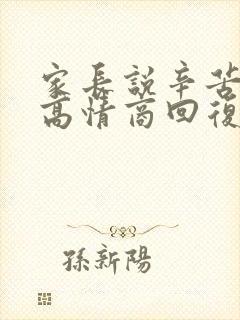 家長說辛苦
高情商回復
孫新陽